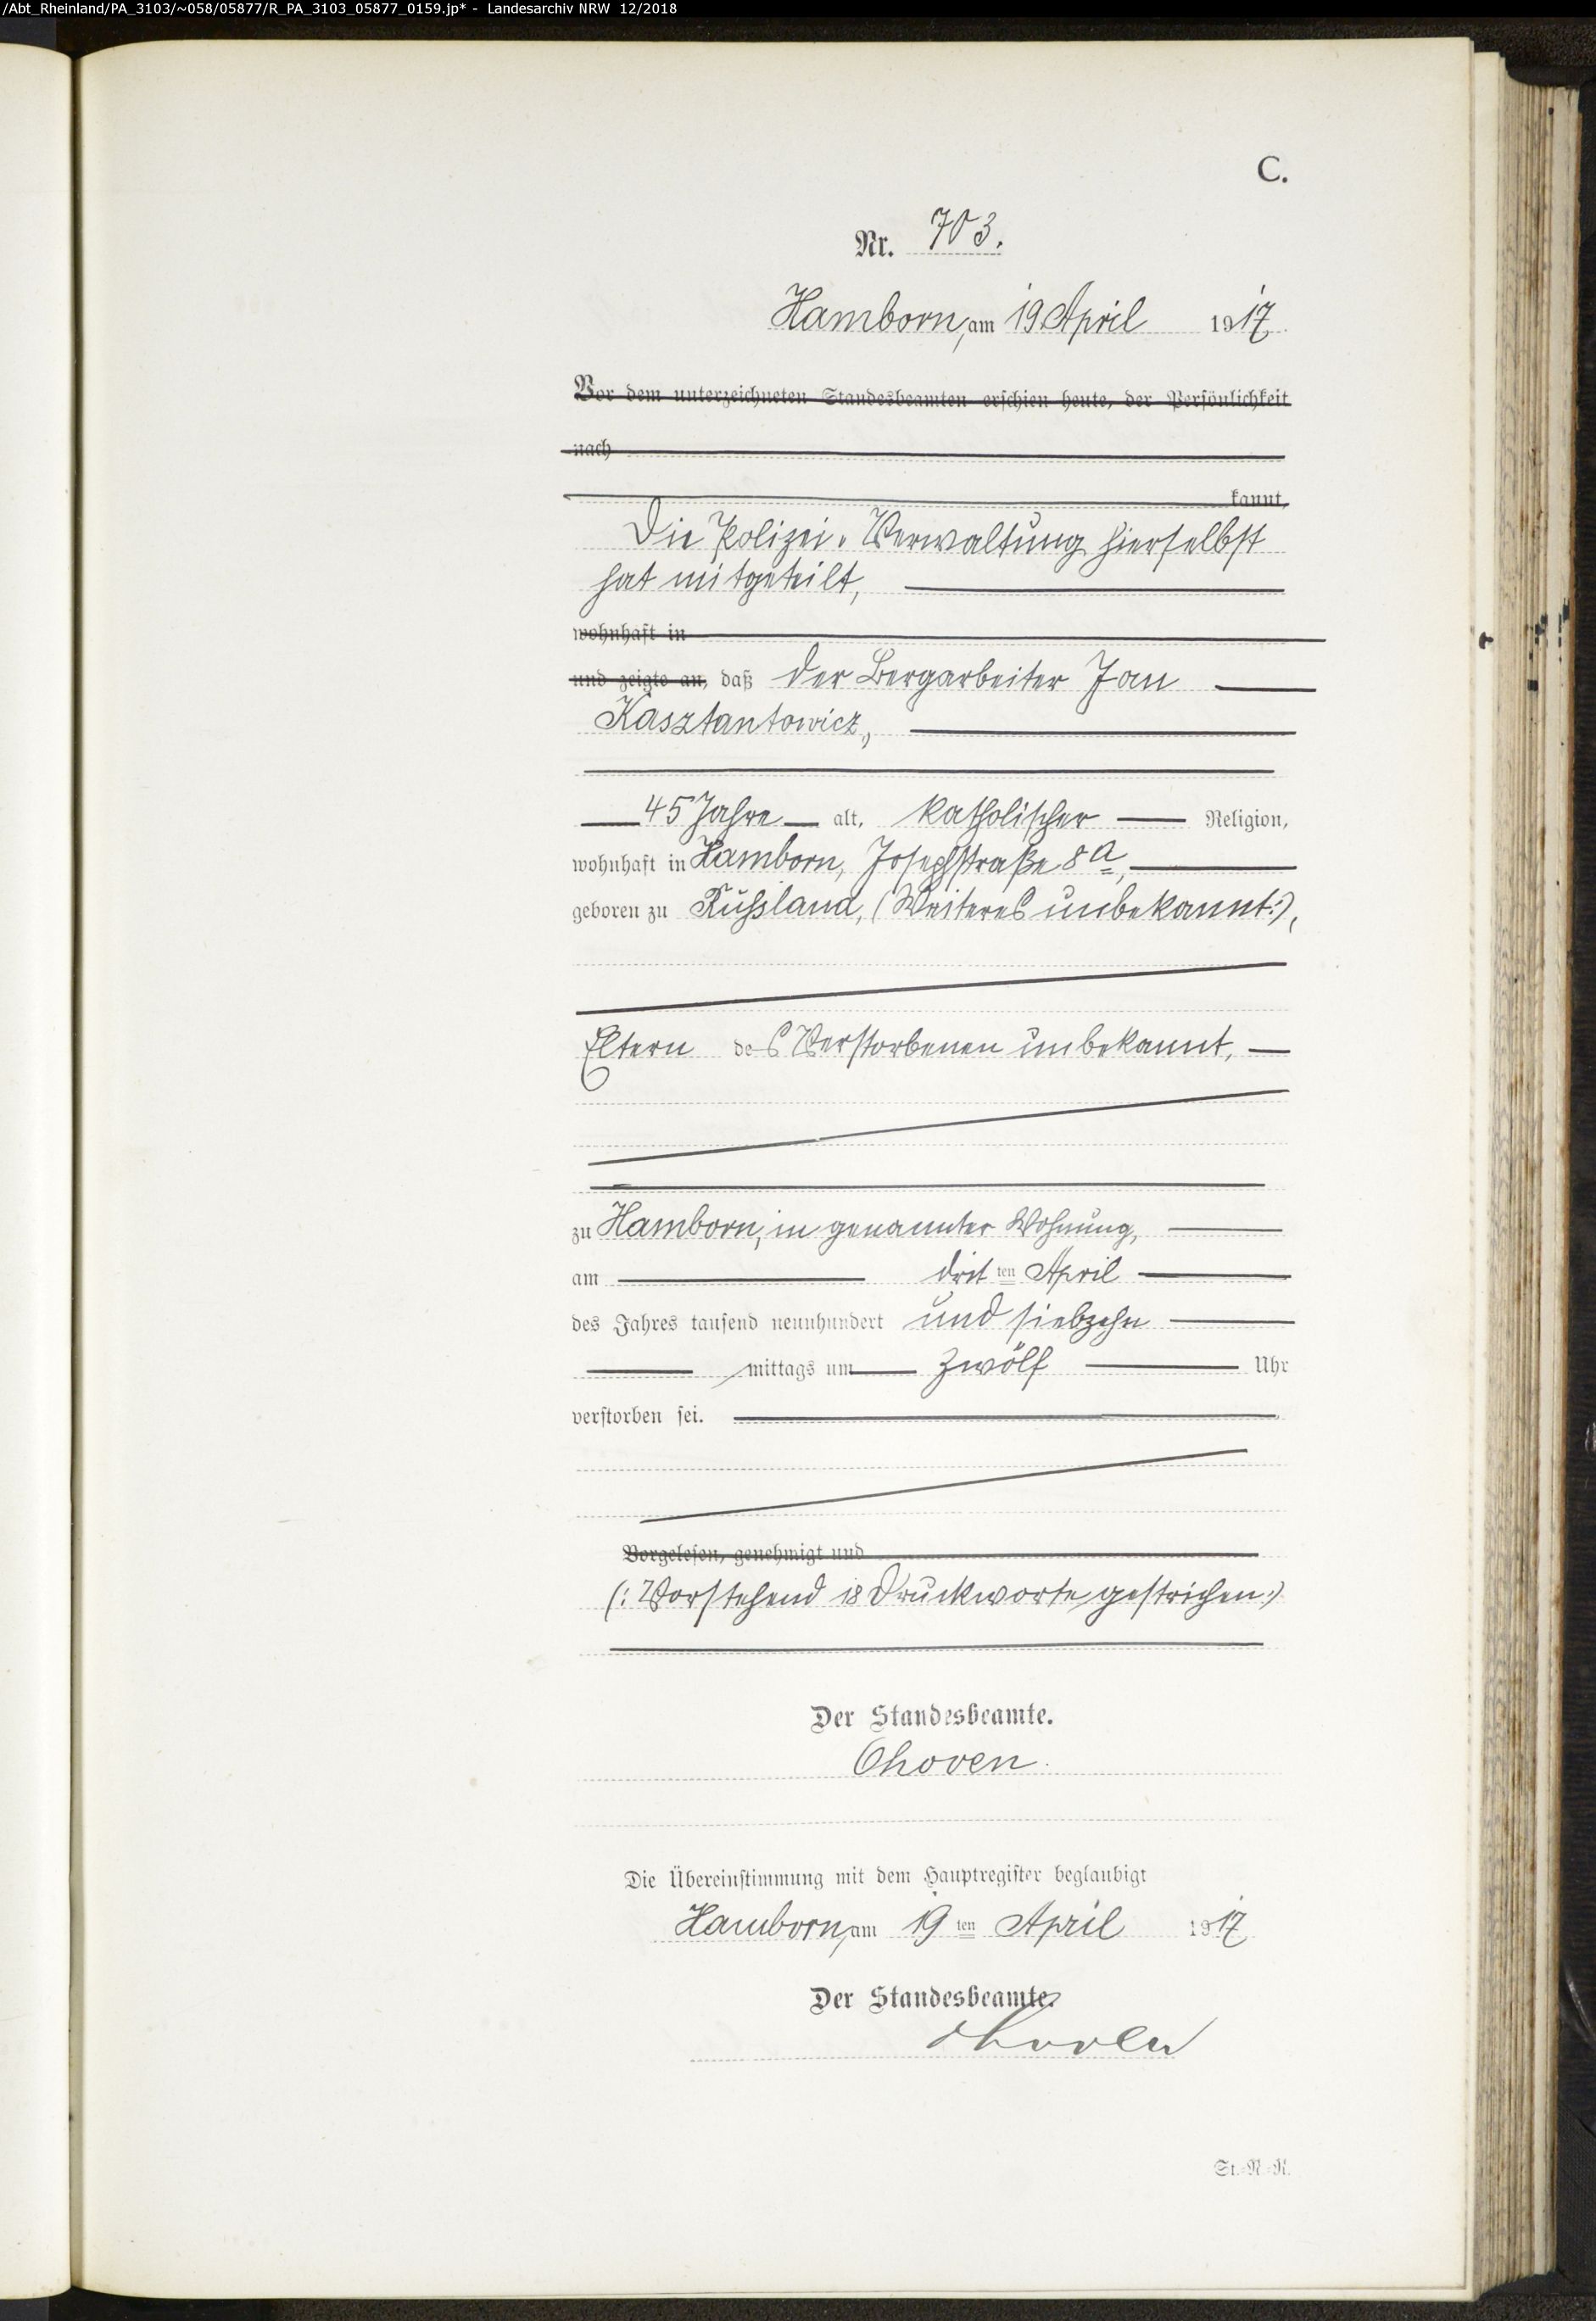 /Abt_Rheinland/PA_3103/~058/05877/R_PA_3103_05877_0159.jp* - Landesarchiv NRW 12/2018
C.
Nr. 703.
Hamborn, am 19 April 1917.
Vor dem unterzeichneten Standesbeamten erschien heute, der Persönlichkeit
nach
kannt,
Die Polizei-Verwaltung hierselbst
hat mitgeteilt,
wohnhaft in
und zeigte an, daß der Bergarbeiter Jan
Kasztantowicz,
45 Jahre alt, katholischer Religion,
wohnhaft in Hamborn, Josephstraße 8a,
geboren zu Rußland, (Weiteres unbekannt:),
Eltern des Verstorbenen unbekannt,
zu Hamborn, in genannter Wohnung,
am dritten April
des Jahres tausend neunhundert und siebzehn
mittags um zwölf Uhr
verstorben sei.
Vorgelesen, genehmigt und
(: Vorstehend 18 Druckworte gestrichen:)
Der Standesbeamte.
Ohoven.
Die Übereinstimmung mit dem Hauptregister beglaubigt
Hamborn, am 19ten April 1917
Der Standesbeamte.
Ohoven
St.-R.-R.